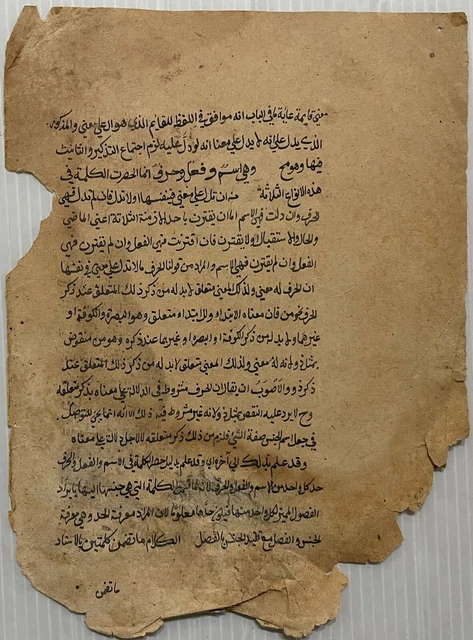 معنى قايمة غاية ما فى الباب انه موافق فى اللفظ للقايم الذى هو دال على معنى والمذكور
الذى يدل على انه لا يدل على معنا انه لو دل عليه لزم اجتماع التذكير والتانيث
فيها وهو مح وهى اسم وفعل وحرف انما انحصرت الكلمة فى
هذه الانواع الثلاثة لانها ان تدل على معنى فى نفسها او لا تدل فان لم تدل فهى
الحرف وان دلت فهى الاسم اما ان يقترن باحد الازمنة الثلاثة اعنى الماضى
والحال والاستقبال او لا يقترن فان اقترنت فهى الفعل وان لم يقترن فهى
الفعل وان لم يقترن فهى الاسم والمراد من قولنا الحرف ما لا تدل على معنى فى نفسها
ان الحرف له معنى ولذلك المعنى متعلق لا بد له من ذكر ذلك المتعلق عند ذكر
الحرف نحو من فان معناه الابتداء ولابتداء متعلق وهو البصرة والكوفة او
غيرهما ولا بد لمن ذكر الكوفة او البصرة او غيرهما عند ذكره وهو منقوض
بمثل ذو لانه له معنى ولذلك المعنى متعلق لا بد له من ذكر ذلك المتعلق عند
ذكر ذو والاصوب ان يقال ان الحرف مشروط فى الدلالة على معناه بذكر متعلقه
وح لا يرد عليه النقض بمثل ذو لانه غير مشروط فيه ذلك لانه انما يجئ للتوصل
فى جعل اسم الجنس صفة الشئ فلزم من ذلك ذكر متعلقه لا لاجل دلالته على معناه
وقد علم بذلك الى آخره اى وقد علم بدليل حصر الكلمة فى الاسم والفعل والحرف
حد كل واحد من الاسم والفعل والحرف لانه الكلمة التى هى جنسها اليها بايراد
الفصول المميز لكل واحد منها فيكون حدها معلوما لان المراد معرفة الحد هى معرفة
الجنس والفصل مع تقييد الجنس بالفصل الكلام ما تضمن كلمتين بالاسناد
ما تضمن